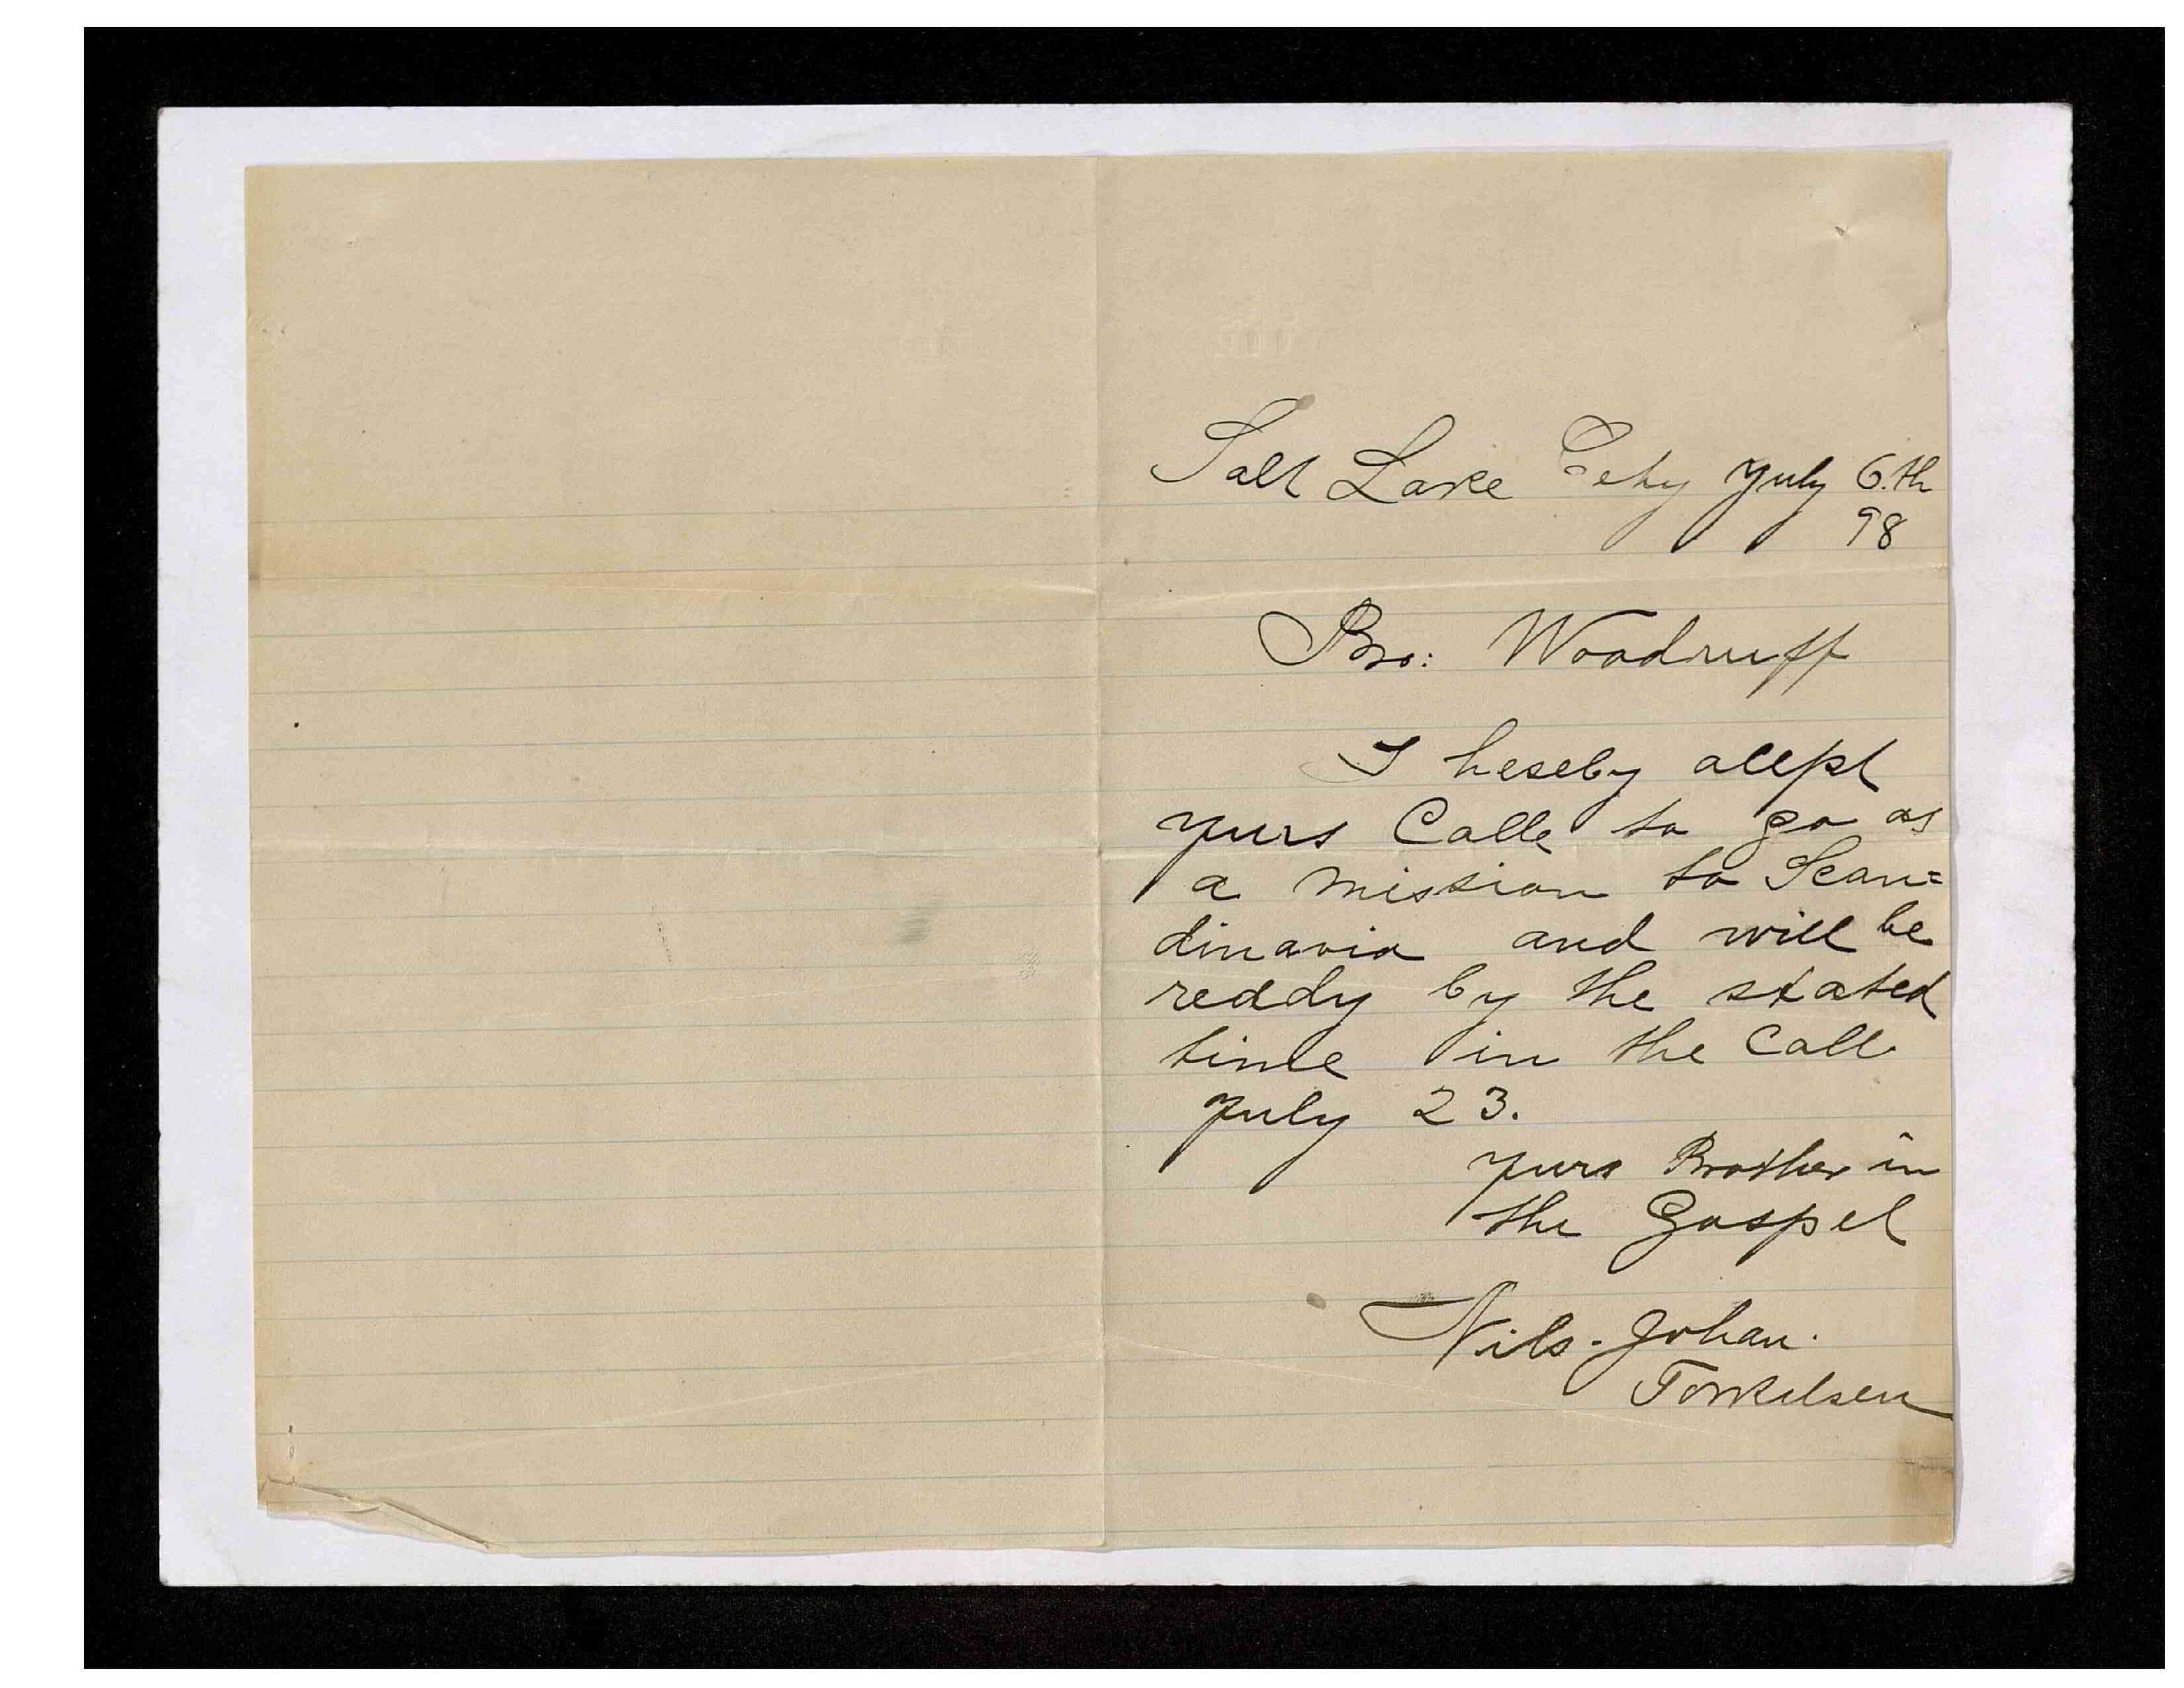 Salt Lake Cety July 6.th
98
Bro: Woodruff
I hereby accept
yurs Calle to go as
a mission to Scan=
dinavia and will be
reddy by the stated
time in the Call
July 23.
yurs Brother in
the Gospel
Nils. Johan.
Torkelsen